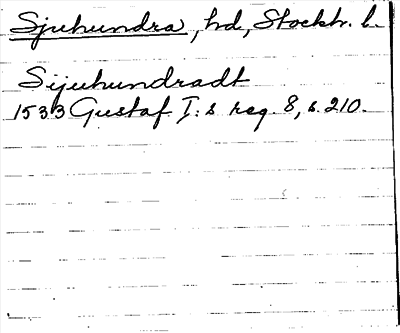 Sjuhundra, hd, Stockh. l.
Sijuhundradt
1533 Gustaf I:s reg. 8, s. 210.